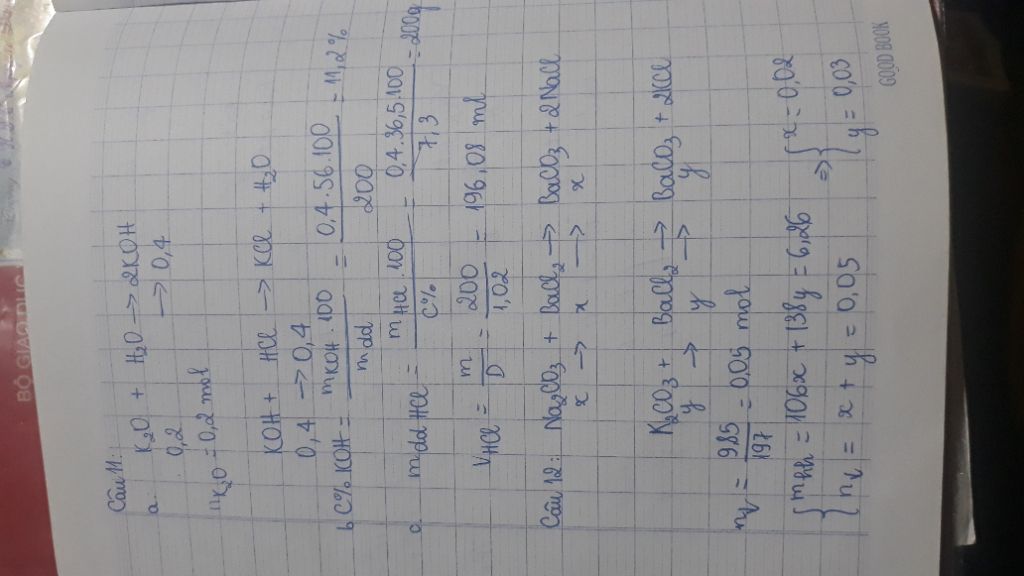 BỘ GIÁO DỤC
Câu 11:
a. K₂O + H₂O → 2KOH
0,2 → 0,4
nK₂O = 0,2 mol
KOH + HCl → KCl + H₂O
0,4 → 0,4
b C% KOH = mKOH . 100 / mdd = 0,4 . 56 . 100 / 200 = 11,2%
c mdd HCl = mHCl . 100 / C% = 0,4 . 36,5 . 100 / 7,3 = 200g
VHCl = m / D = 200 / 1,02 = 196,08 ml
Câu 12: Na₂CO₃ + BaCl₂ → BaCO₃ + 2NaCl
x → x → x
K₂CO₃ + BaCl₂ → BaCO₃ + 2KCl
y → y → y
n↓ = 9,85 / 197 = 0,05 mol
{ mhh = 106x + 138y = 6,26 => { x = 0,02
{ n↓ = x + y = 0,05 { y = 0,03
GOOD BOOK